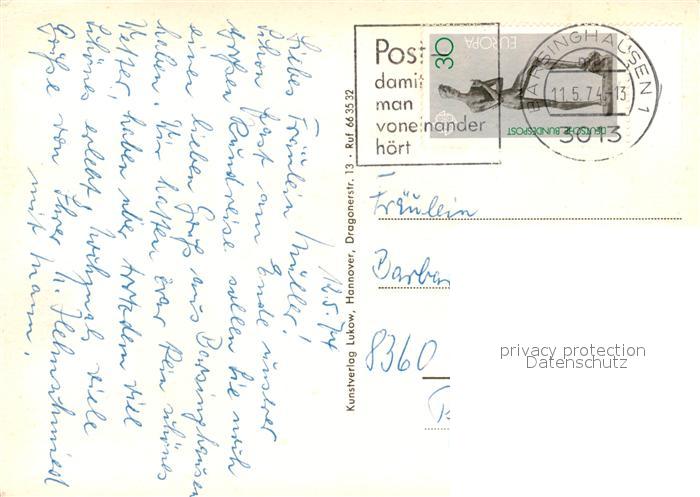 12.5.74
Liebes Fräulein Müller!
Schon fast am Ende unserer
großen Rundreise sollen Sie noch
einen lieben Gruß aus Barsinghausen
haben. Wir hatten zwar kein schönes
Wetter, haben aber trotzdem viel
Schönes erlebt. Nochmals viele
Grüße von Ihrer H. Helmschmied
mit Mann.
Kunstverlag Lukow, Hannover, Dragonerstr. 13 · Ruf 66 35 32
Post
damit
man
voneinander
hört
30
EUROPA
DEUTSCHE BUNDESPOST
BARSINGHAUSEN 1
11.5.74-13
3013
Fräulein
Barbar
8360
privacy protection
Datenschutz